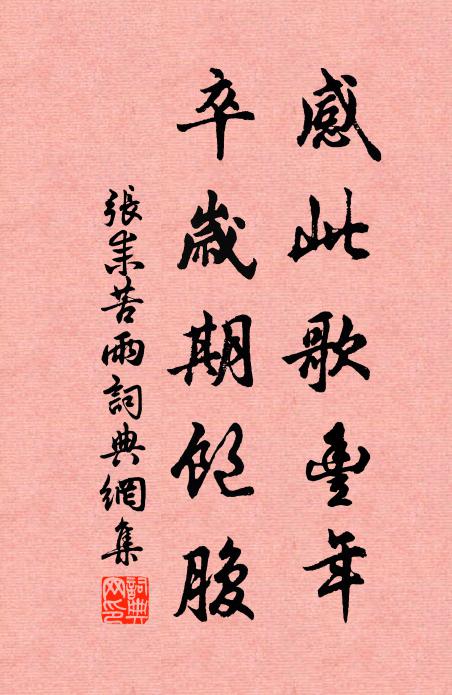 感此歌豐年
卒歲期飽腹
張耒苦雨詞典網集
詞典網印